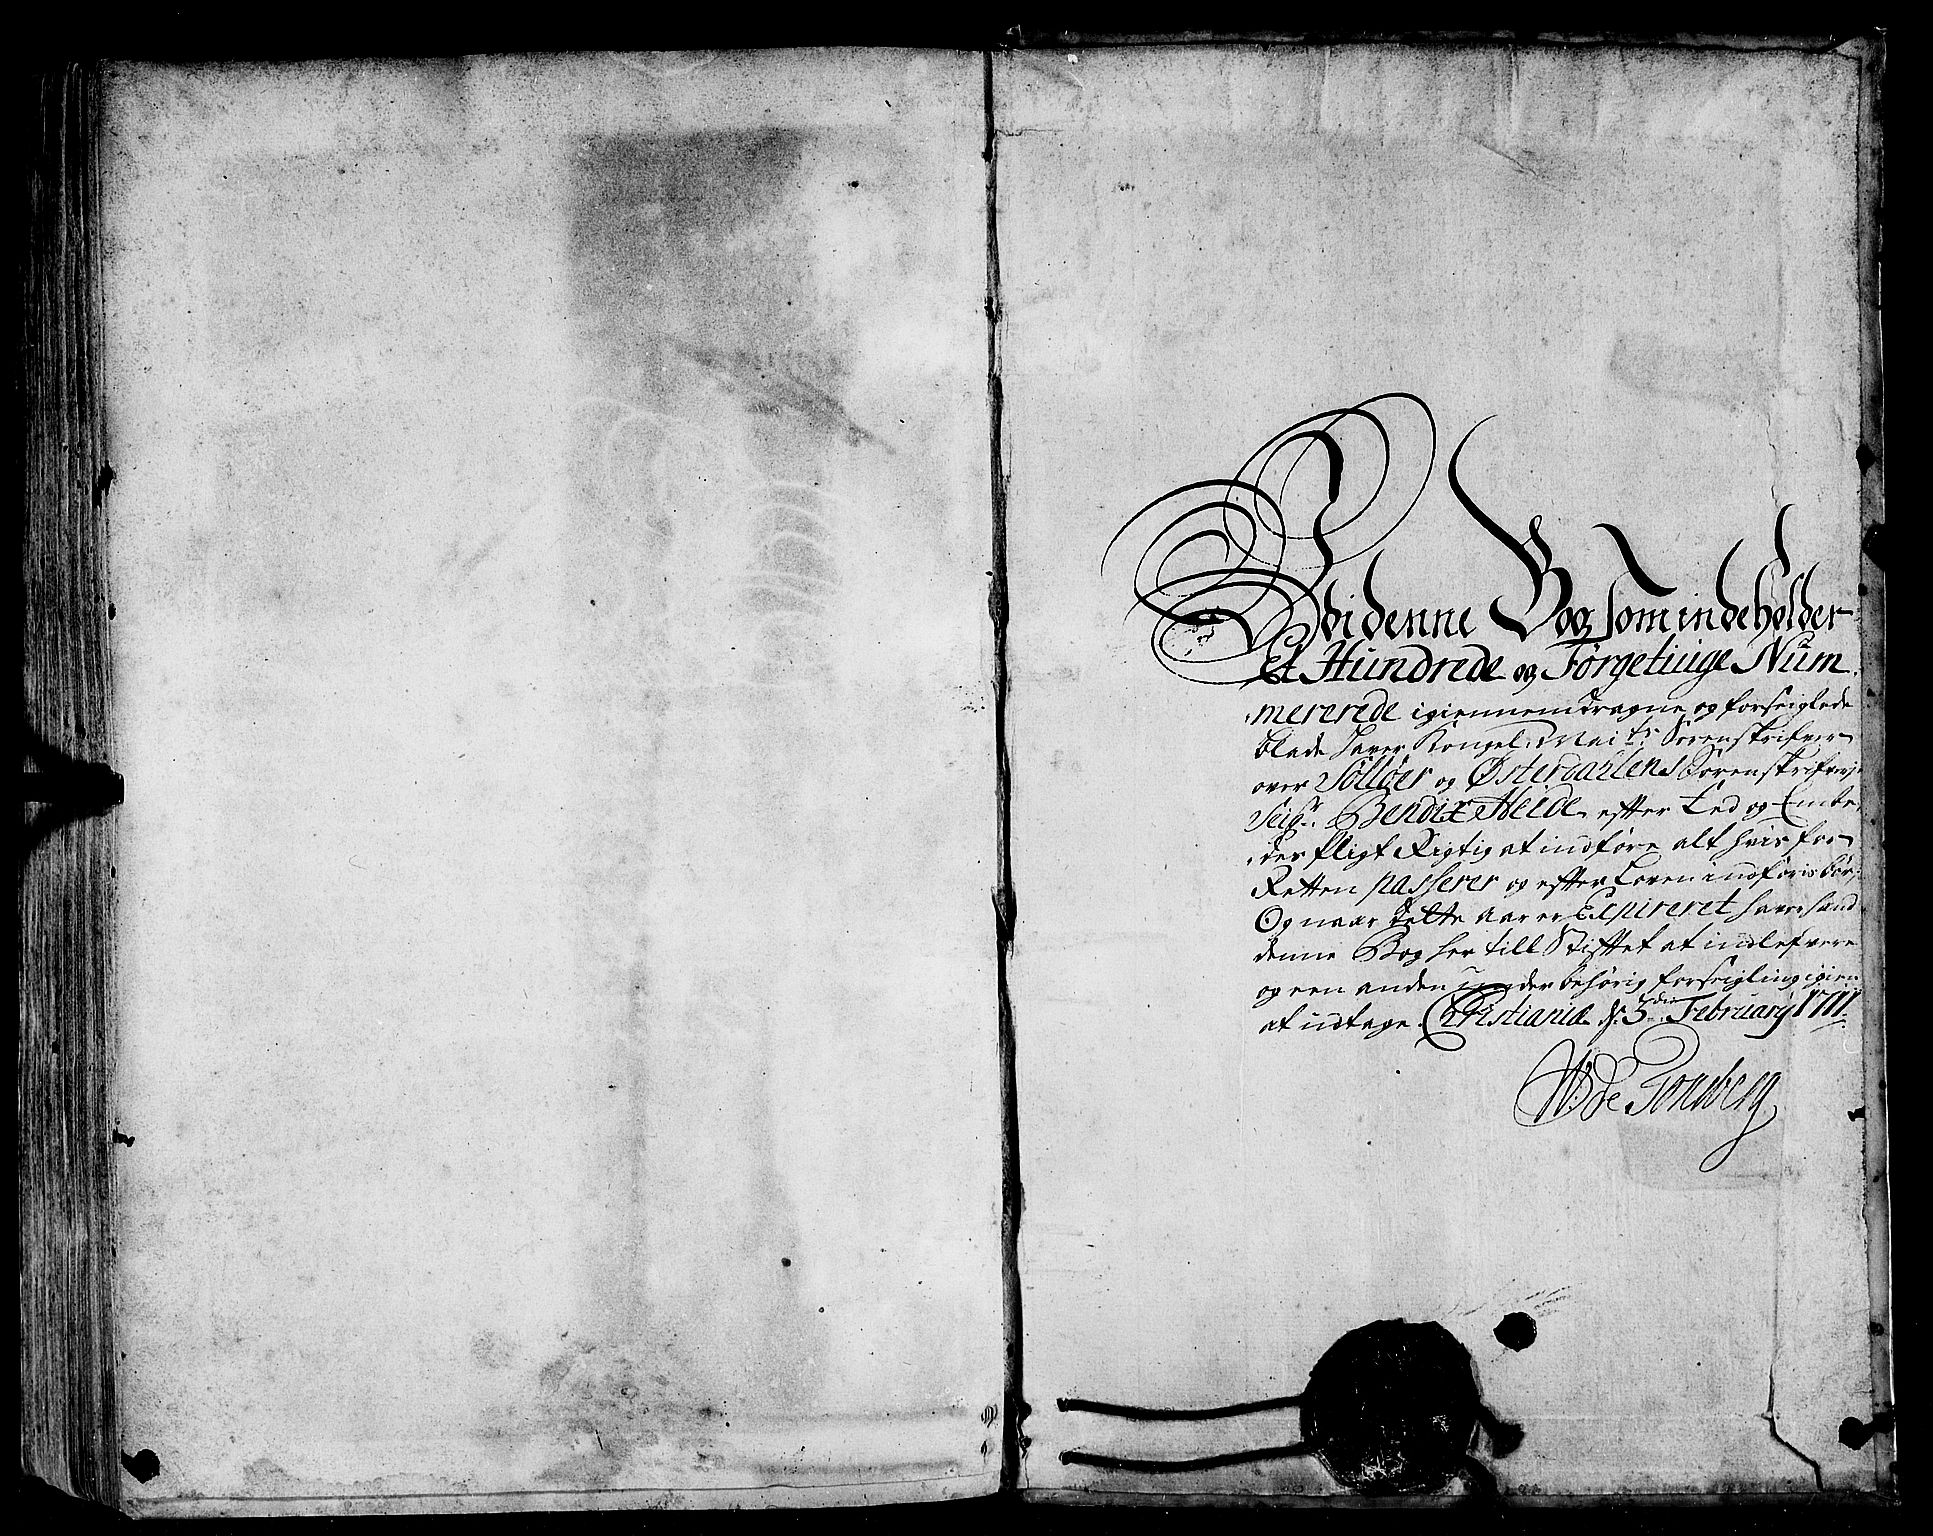 Udi denne Bog som indeholder
Et Hundrede og Førgetiuge Num¬
merede igiennemdragne og forseiglede
blade haver Kongel: Mai:ts Sorenskrifver
over Solløer og Østerdahlens Sorenskriverj
Seigr: Bendix Heide efter Eed og Embe¬
des Pligt Rigtig at indføre alt hvis for
Retten passerer og efter Loven indføris bør.
Og naar dette Aar er Expireret haver hand
denne Bog her till Stifftet at indlefvere
og een anden under behørig forseigling igien
at udtage. Christianiæ d: 3die February 1711.
W: de Tonsberg